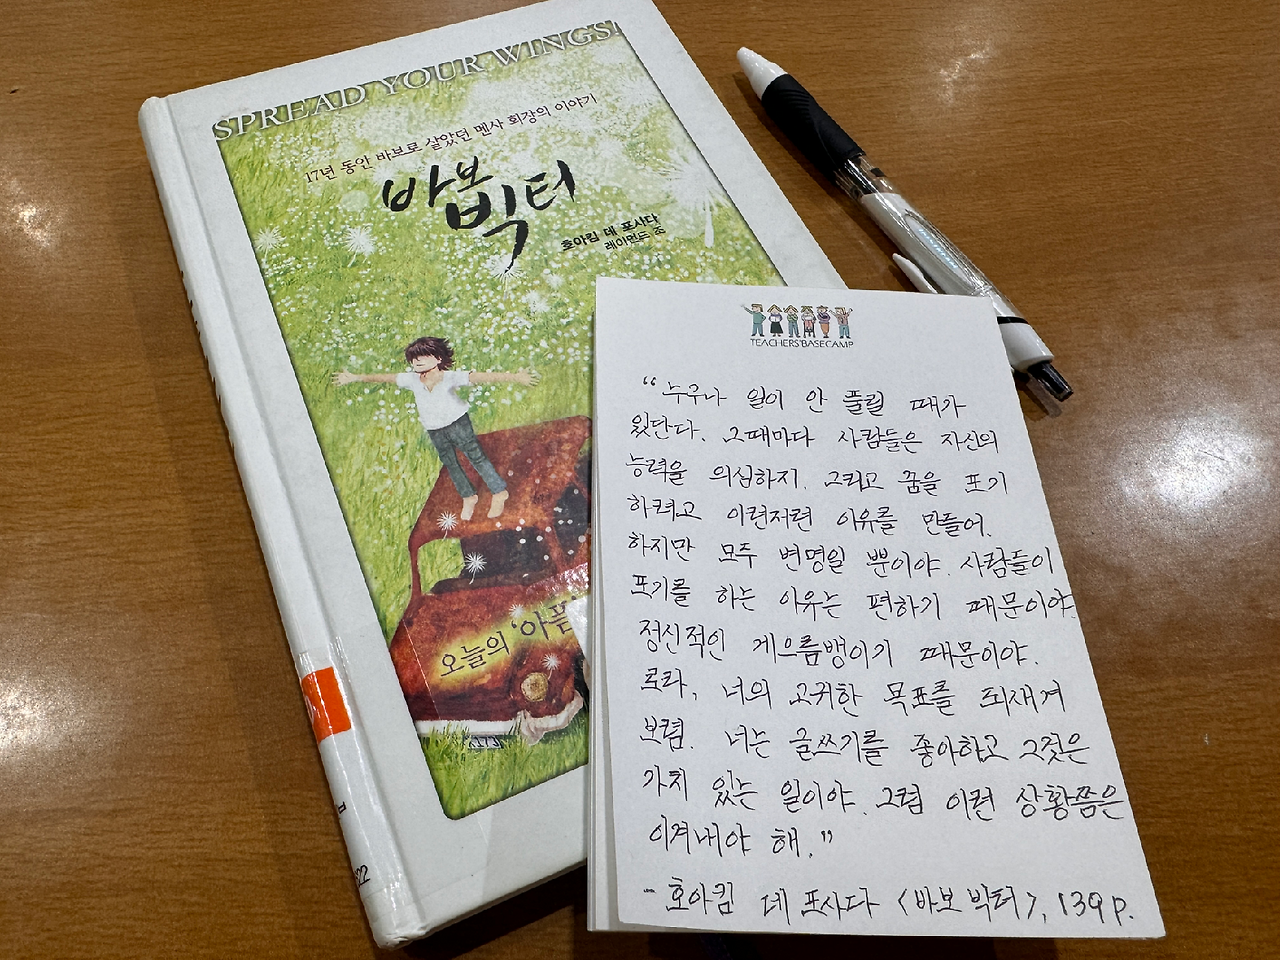 SPREAD YOUR WINGS!
17년 동안 바보로 살았던 멘사 회장의 이야기
바보
빅터
호아킴 데 포사다
레이먼드 조
오늘의 '아픔
TEACHERS'BASECAMP
“누구나 일이 안 풀릴 때가
있단다. 그때마다 사람들은 자신의
능력을 의심하지. 그리고 꿈을 포기
하려고 이런저런 이유를 만들어.
하지만 모두 변명일 뿐이야. 사람들이
포기를 하는 이유는 편하기 때문이야.
정신적인 게으름뱅이기 때문이야.
로라, 너의 고귀한 목표를 되새겨
보렴. 너는 글쓰기를 좋아하고 그것은
가치 있는 일이야. 그럼 이런 상황쯤은
이겨내야 해.”
- 호아킴 데 포사다 <바보 빅터>, 139p.